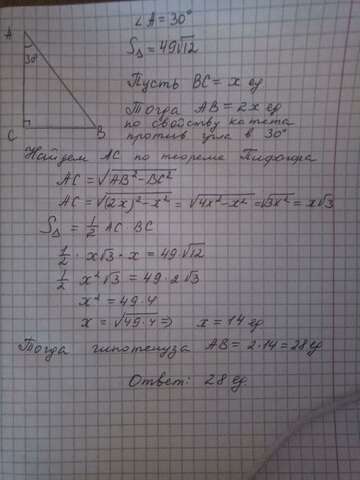 ∠A = 30°
S△ = 49√12
A
30°
C
B
Пусть BC = x ед
Тогда AB = 2x ед
по свойству катета
против угла в 30°
Найдем AC по теореме Пифагора
AC = √AB² - BC²
AC = √(2x)² - x² = √4x² - x² = √3x² = x√3
S△ = 1/2 AC BC
1/2 · x√3 · x = 49 · √12
1/2 x²√3 = 49 · 2√3
x² = 49 · 4
x = √49 · 4 ⇒ x = 14 ед
Тогда гипотенуза AB = 2 · 14 = 28 ед
Ответ: 28 ед.